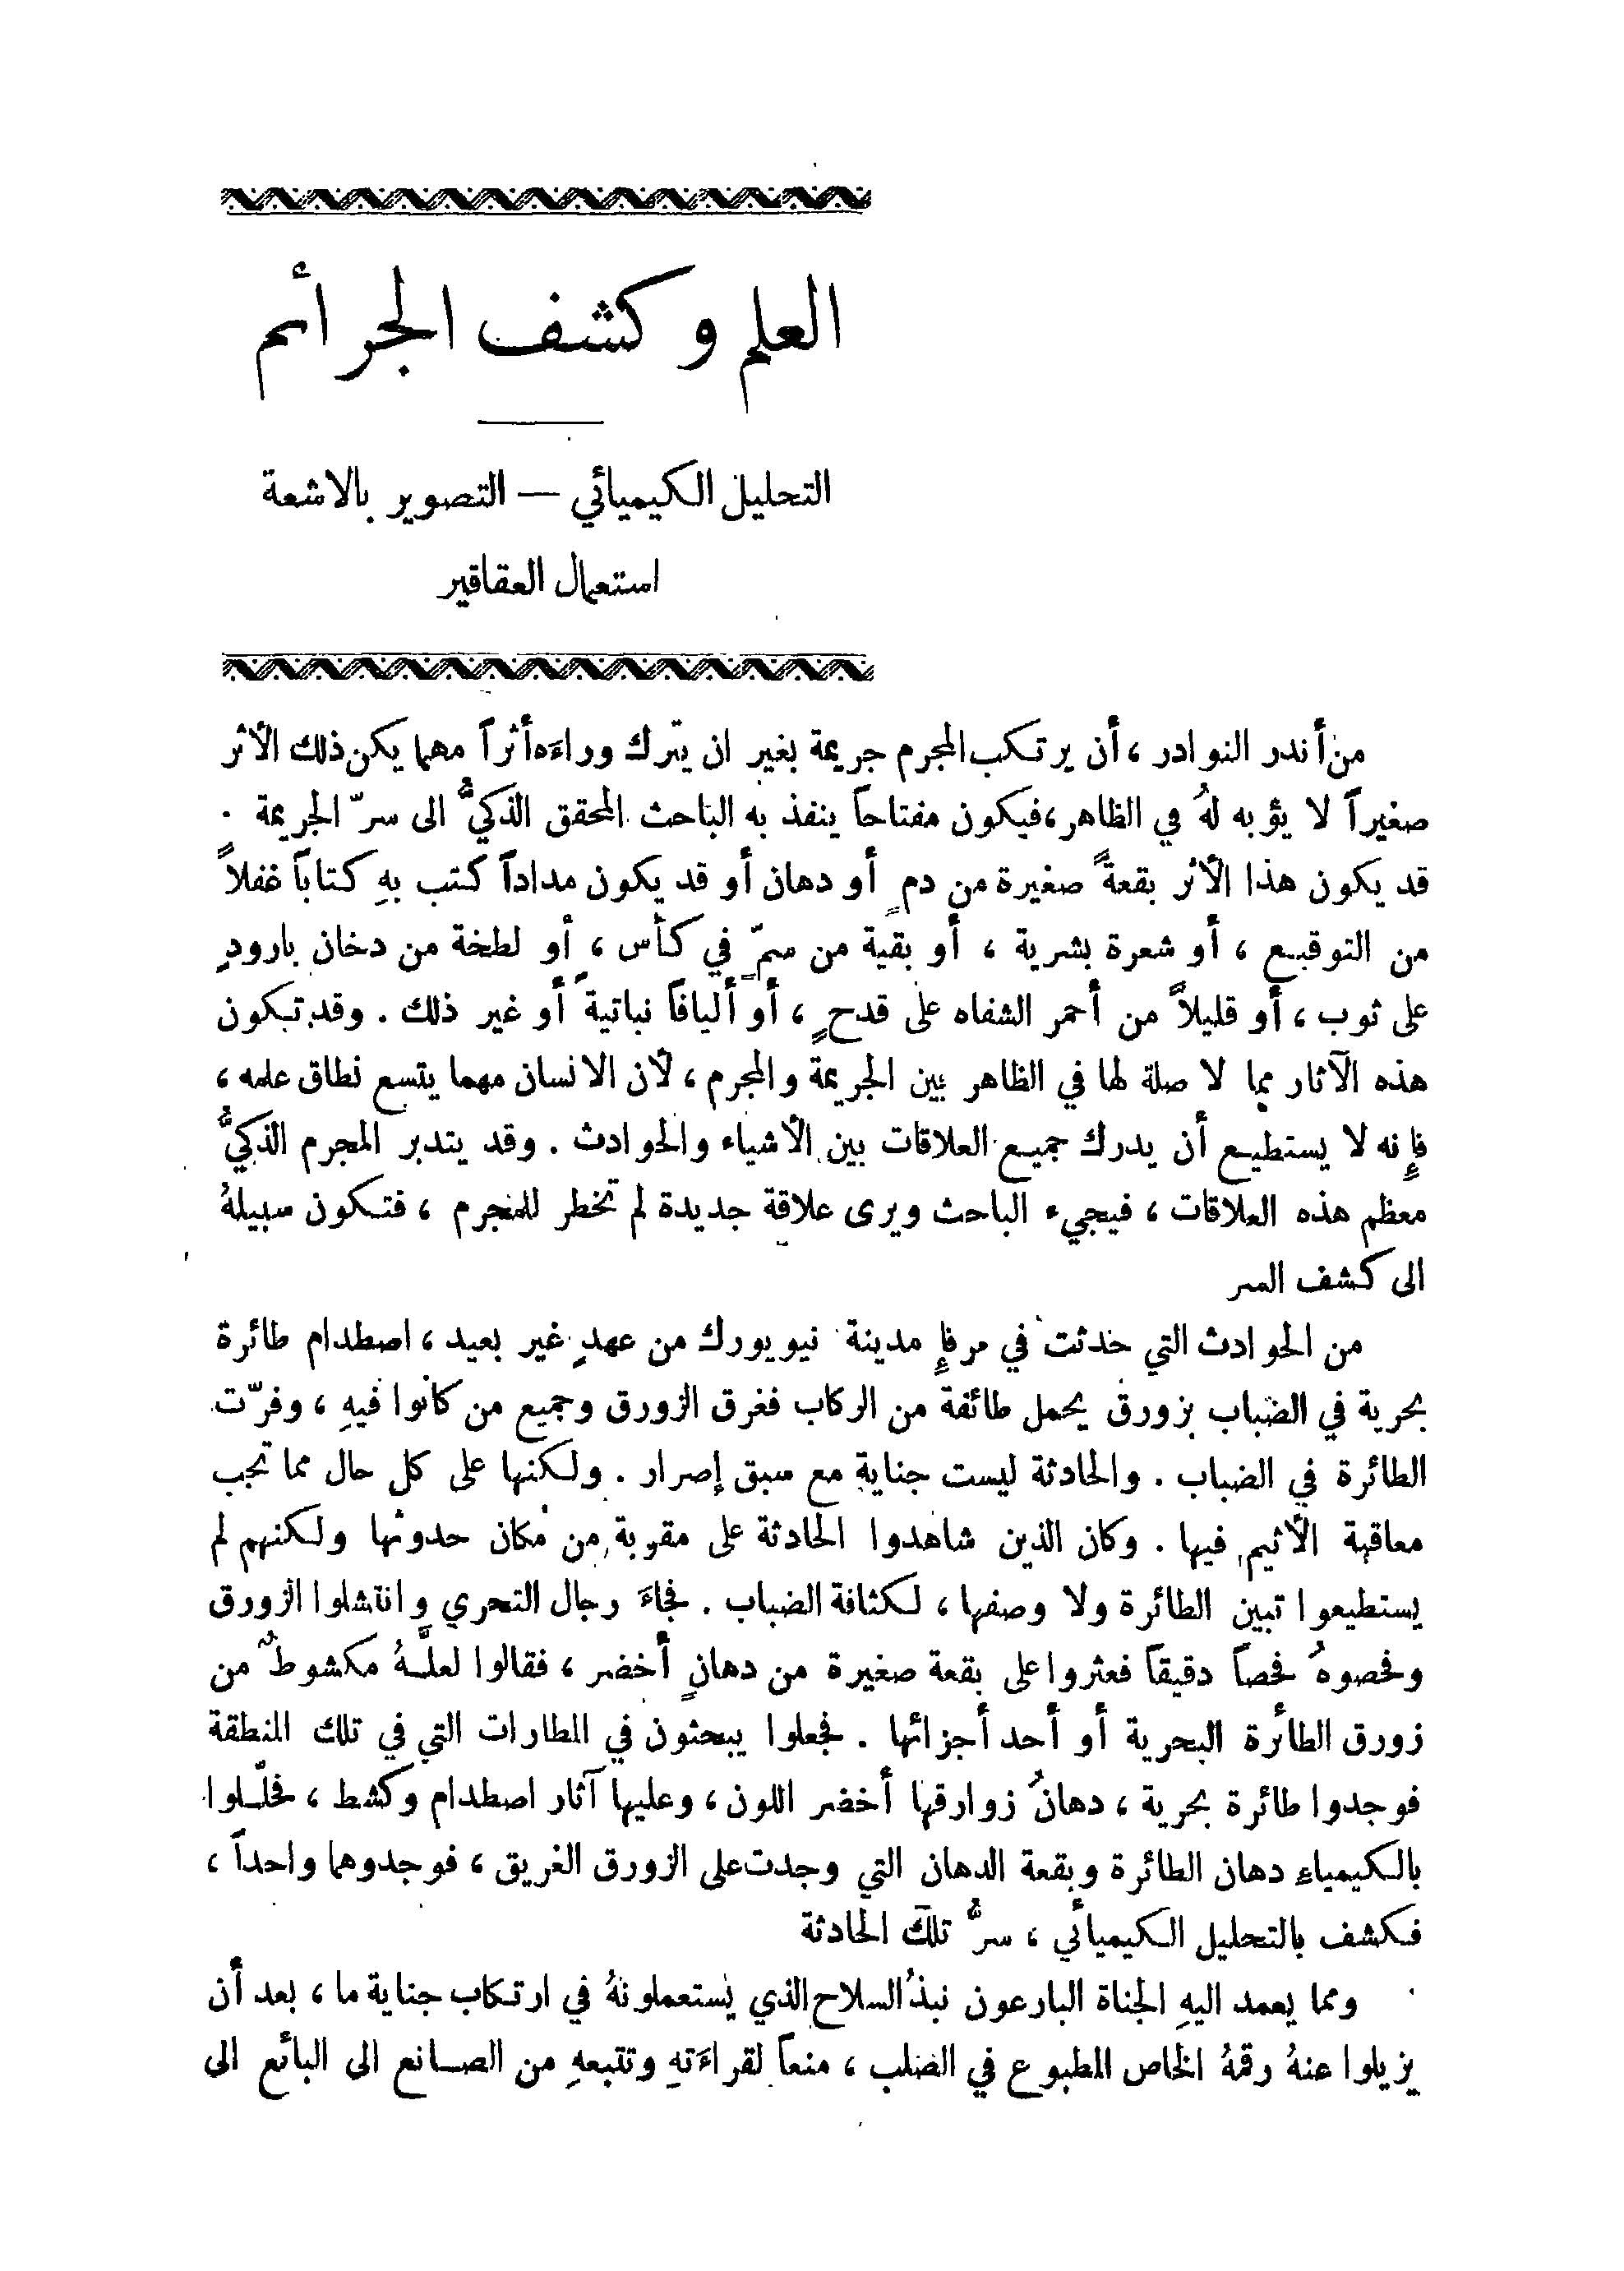 العلم وكشف الجرائم
التحليل الكيميائي — التصوير بالاشعة
استعمال العقاقير
من أندر النوادر ، أن يرتكب المجرم جريمة بغير ان يترك وراءَه أثراً مهما يكن ذلك الأثر
صغيراً لا يؤبه لهُ في الظاهر ، فيكون مفتاحاً ينفذ به الباحث المحقق الذكيُّ الى سرّ الجريمة .
قد يكون هذا الأثر بقعةً صغيرة من دمٍ أو دهان أو قد يكون مداداً كتب بهِ كتاباً غفلاً
من التوقيع ، أو شعرة بشرية ، أو بقية من سمّ في كأس ، أو لطخة من دخان بارودٍ
على ثوب ، أو قليلاً من أحمر الشفاه على قدحٍ ، أو أليافاً نباتيةً أو غير ذلك . وقد تكون
هذه الآثار مما لا صلة لها في الظاهر بين الجريمة والمجرم ، لأن الانسان مهما يتسع نطاق علمه ،
فإنه لا يستطيع أن يدرك جميع العلاقات بين الأشياء والحوادث . وقد يتدبر المجرم الذكيُّ
معظم هذه العلاقات ، فيجيء الباحث ويرى علاقة جديدة لم تخطر للمجرم ، فتكون سبيلهُ
الى كشف السر
من الحوادث التي حدثت في مرفإِ مدينة نيويورك من عهدٍ غير بعيد ، اصطدام طائرة
بحرية في الضباب بزورق يحمل طائفة من الركاب فغرق الزورق وجميع من كانوا فيهِ ، وفرّت
الطائرة في الضباب . والحادثة ليست جناية مع سبق إصرار . ولكنها على كل حال مما تجب
معاقبة الأثيم فيها . وكان الذين شاهدوا الحادثة على مقربة من مكان حدوثها ولكنهم لم
يستطيعوا تبين الطائرة ولا وصفها ، لكثافة الضباب . فجاءَ رجال التحري وانتشلوا الزورق
وفحصوهُ فحصاً دقيقاً فعثروا على بقعة صغيرة من دهانٍ أخضر ، فقالوا لعلَّهُ مكشوطٌ من
زورق الطائرة البحرية أو أحد أجزائها . فجعلوا يبحثون في المطارات التي في تلك المنطقة
فوجدوا طائرة بحرية ، دهانُ زوارقها أخضر اللون ، وعليها آثار اصطدام وكشط ، فحلّلوا
بالكيمياء دهان الطائرة وبقعة الدهان التي وجدت على الزورق الغريق ، فوجدوهما واحداً ،
فكشف بالتحليل الكيميائي ، سرُّ تلك الحادثة
ومما يعمد اليهِ الجناة البارعون نبذُ السلاح الذي يستعملونهُ في ارتكاب جناية ما ، بعد أن
يزيلوا عنهُ رقمهُ الخاص المطبوع في الصلب ، منعاً لقراءَتهِ وتتبعهِ من الصانع الى البائع الى